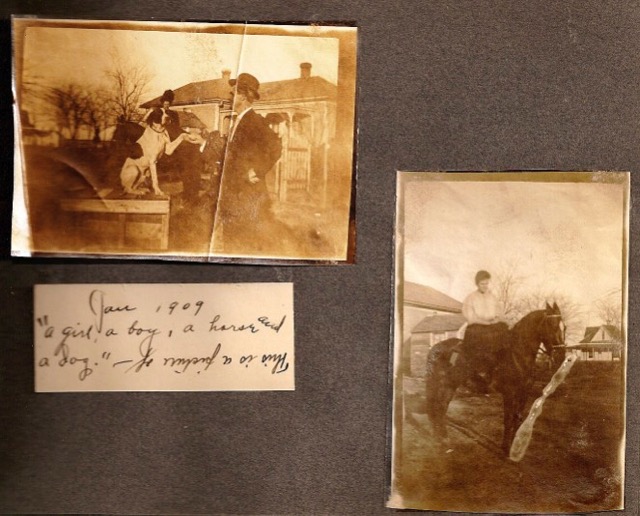 This is a picture of —
"a girl, a boy, a horse and
a dog"
Jan 1909